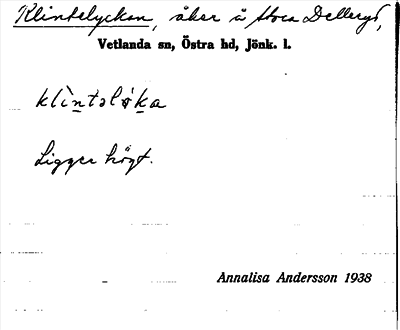 Klintelyckan, åker å Stora Delleryd,
Vetlanda sn, Östra hd, Jönk. l.
Ligger högt.
Annalisa Andersson 1938